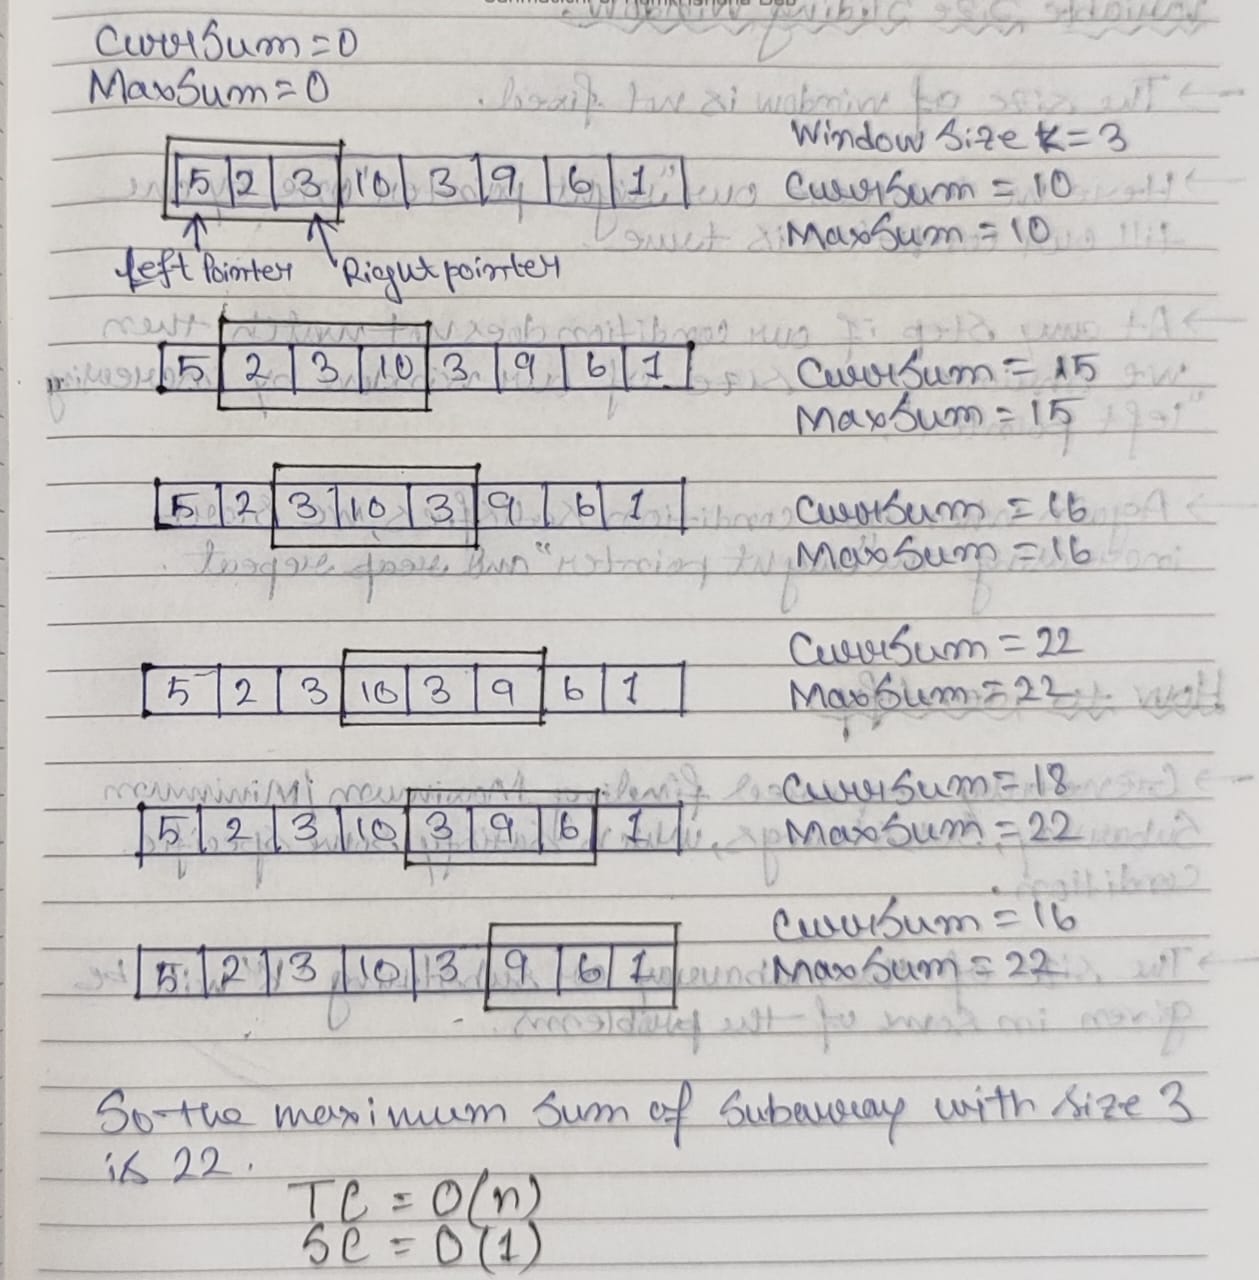 CurrSum = 0
MaxSum = 0
Window Size K = 3
5 2 3 10 3 9 6 1
CurrSum = 10
MaxSum = 10
Left Pointer Right pointer
5 2 3 10 3 9 6 1
CurrSum = 15
MaxSum = 15
5 2 3 10 3 9 6 1
CurrSum = 16
MaxSum = 16
CurrSum = 22
5 2 3 10 3 9 6 1
MaxSum = 22
CurrSum = 18
5 2 3 10 3 9 6 1
MaxSum = 22
CurrSum = 16
5 2 3 10 3 9 6 1
MaxSum = 22
So the maximum sum of subarray with size 3
is 22.
TC = O(n)
SC = O(1)